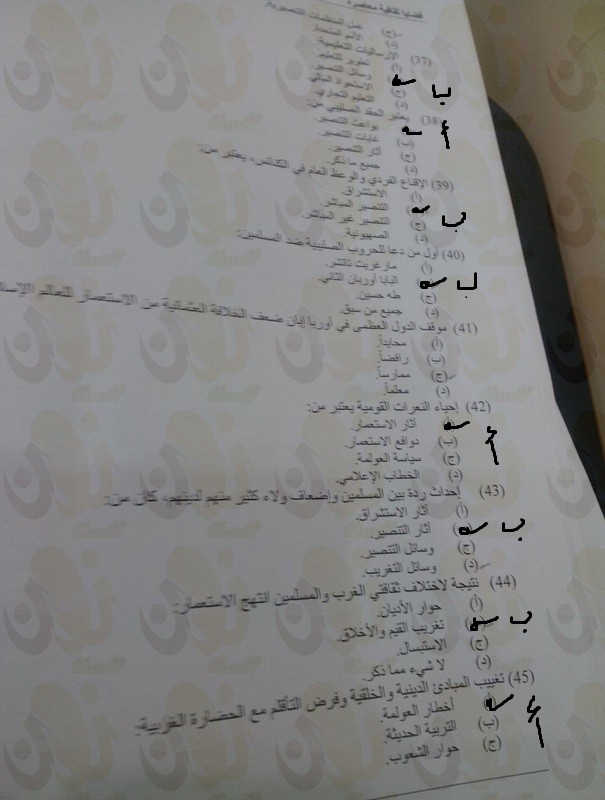 قضايا ثقافية معاصرة
(ج) عمل المنظمات التنصيرية.
(د) الأمم المتحدة.
(37) الإرساليات التعليمية:
(أ) تطوير للتعليم.
وسائل التنصير. ب
(ج) الاستحواذ المالي.
(د) التعليم التجاري.
(38) يعتبر الحقد الصليبي من:
بواعث التنصير. أ
(ب) غايات التنصير.
(ج) آثار التنصير.
(د) جميع ما ذكر.
(39) الإقناع الفردي والوعظ العام في الكنائس، يعتبر من:
(أ) الاستشراق.
التنصير المباشر. ب
(ج) التنصير غير المباشر.
(د) الصهيونية.
(40) أول من دعا للحروب الصليبية ضد المسلمين:
(أ) مارغريت تاتشر.
البابا أوربان الثاني. ب
(ج) طه حسين.
(د) جميع من سبق.
(41) موقف الدول العظمى في أوربا إبان ضعف الخلافة العثمانية من الاستعمار للعالم
(أ) محايداً.
(ب) رافضاً.
(ج) ممارساً.
(د) معلماً.
(42) إحياء النعرات القومية يعتبر من:
آثار الاستعمار. أ
(ب) دوافع الاستعمار.
(ج) سياسة العولمة.
(د) الخطاب الإعلامي.
(43) إحداث ردة بين المسلمين وإضعاف ولاء كثير منهم لدينهم، كان من:
(أ) آثار الاستشراق.
آثار التنصير. ب
(ج) وسائل التنصير.
(د) وسائل التغريب.
(44) نتيجة لاختلاف ثقافتي الغرب والمسلمين انتهج الاستعمار:
(أ) حوار الأديان.
تغريب القيم والأخلاق. ب
(ج) الاستبسال.
(د) لا شيء مما ذكر.
(45) تغييب المبادئ الدينية والخلقية وفرض التأقلم مع الحضارة الغربية:
أخطار العولمة. أ
(ب) التربية الحديثة.
(ج) حوار الشعوب.